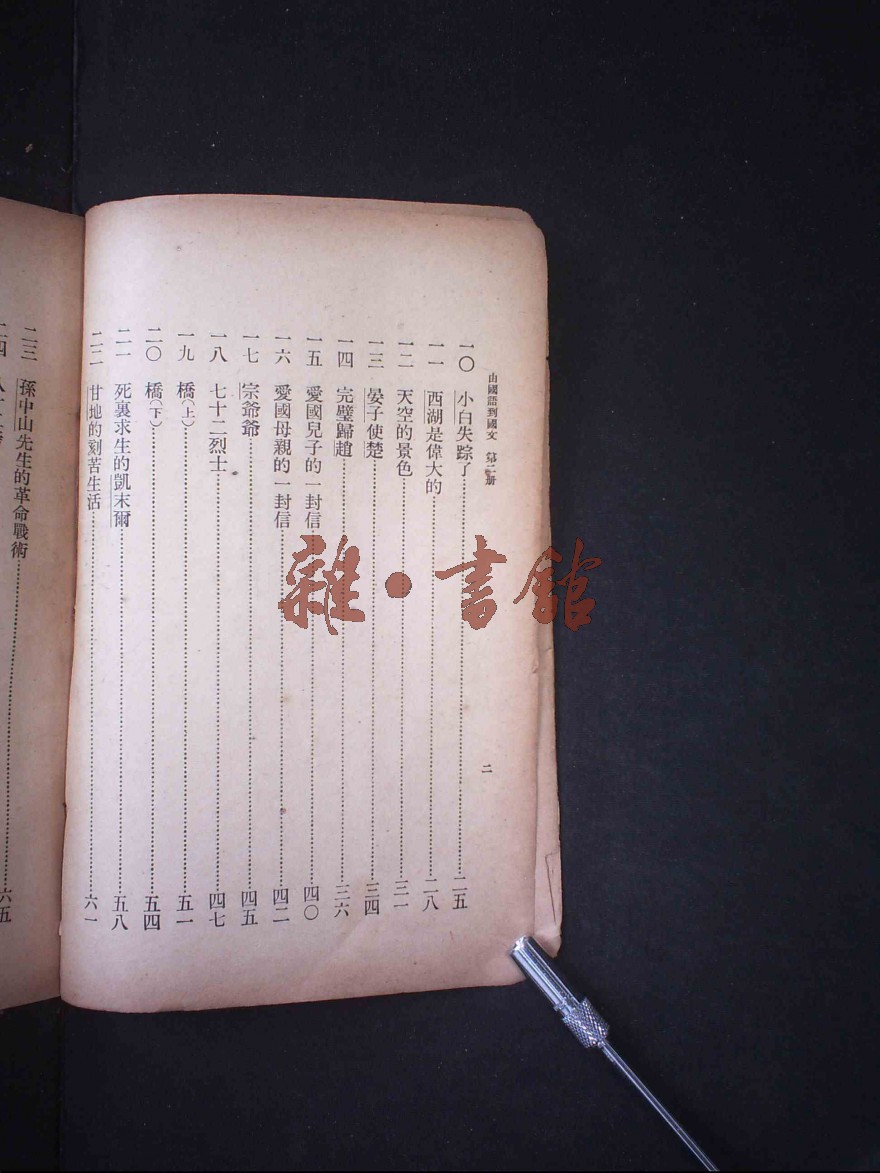 由國語到國文　第二册
二
一〇　小白失踪了……二五
一一　西湖是偉大的……二八
一二　天空的景色……三一
一三　晏子使楚……三四
一四　完璧歸趙……三六
一五　愛國兒子的一封信……四〇
一六　愛國母親的一封信……四二
一七　宗爺爺……四五
一八　七十二烈士……四七
一九　橋(上)……五一
二〇　橋(下)……五四
二一　死裏求生的凱末爾……五八
二二　甘地的刻苦生活……六一
二三　孫中山先生的革命戰術……六五
二四
雜·書館